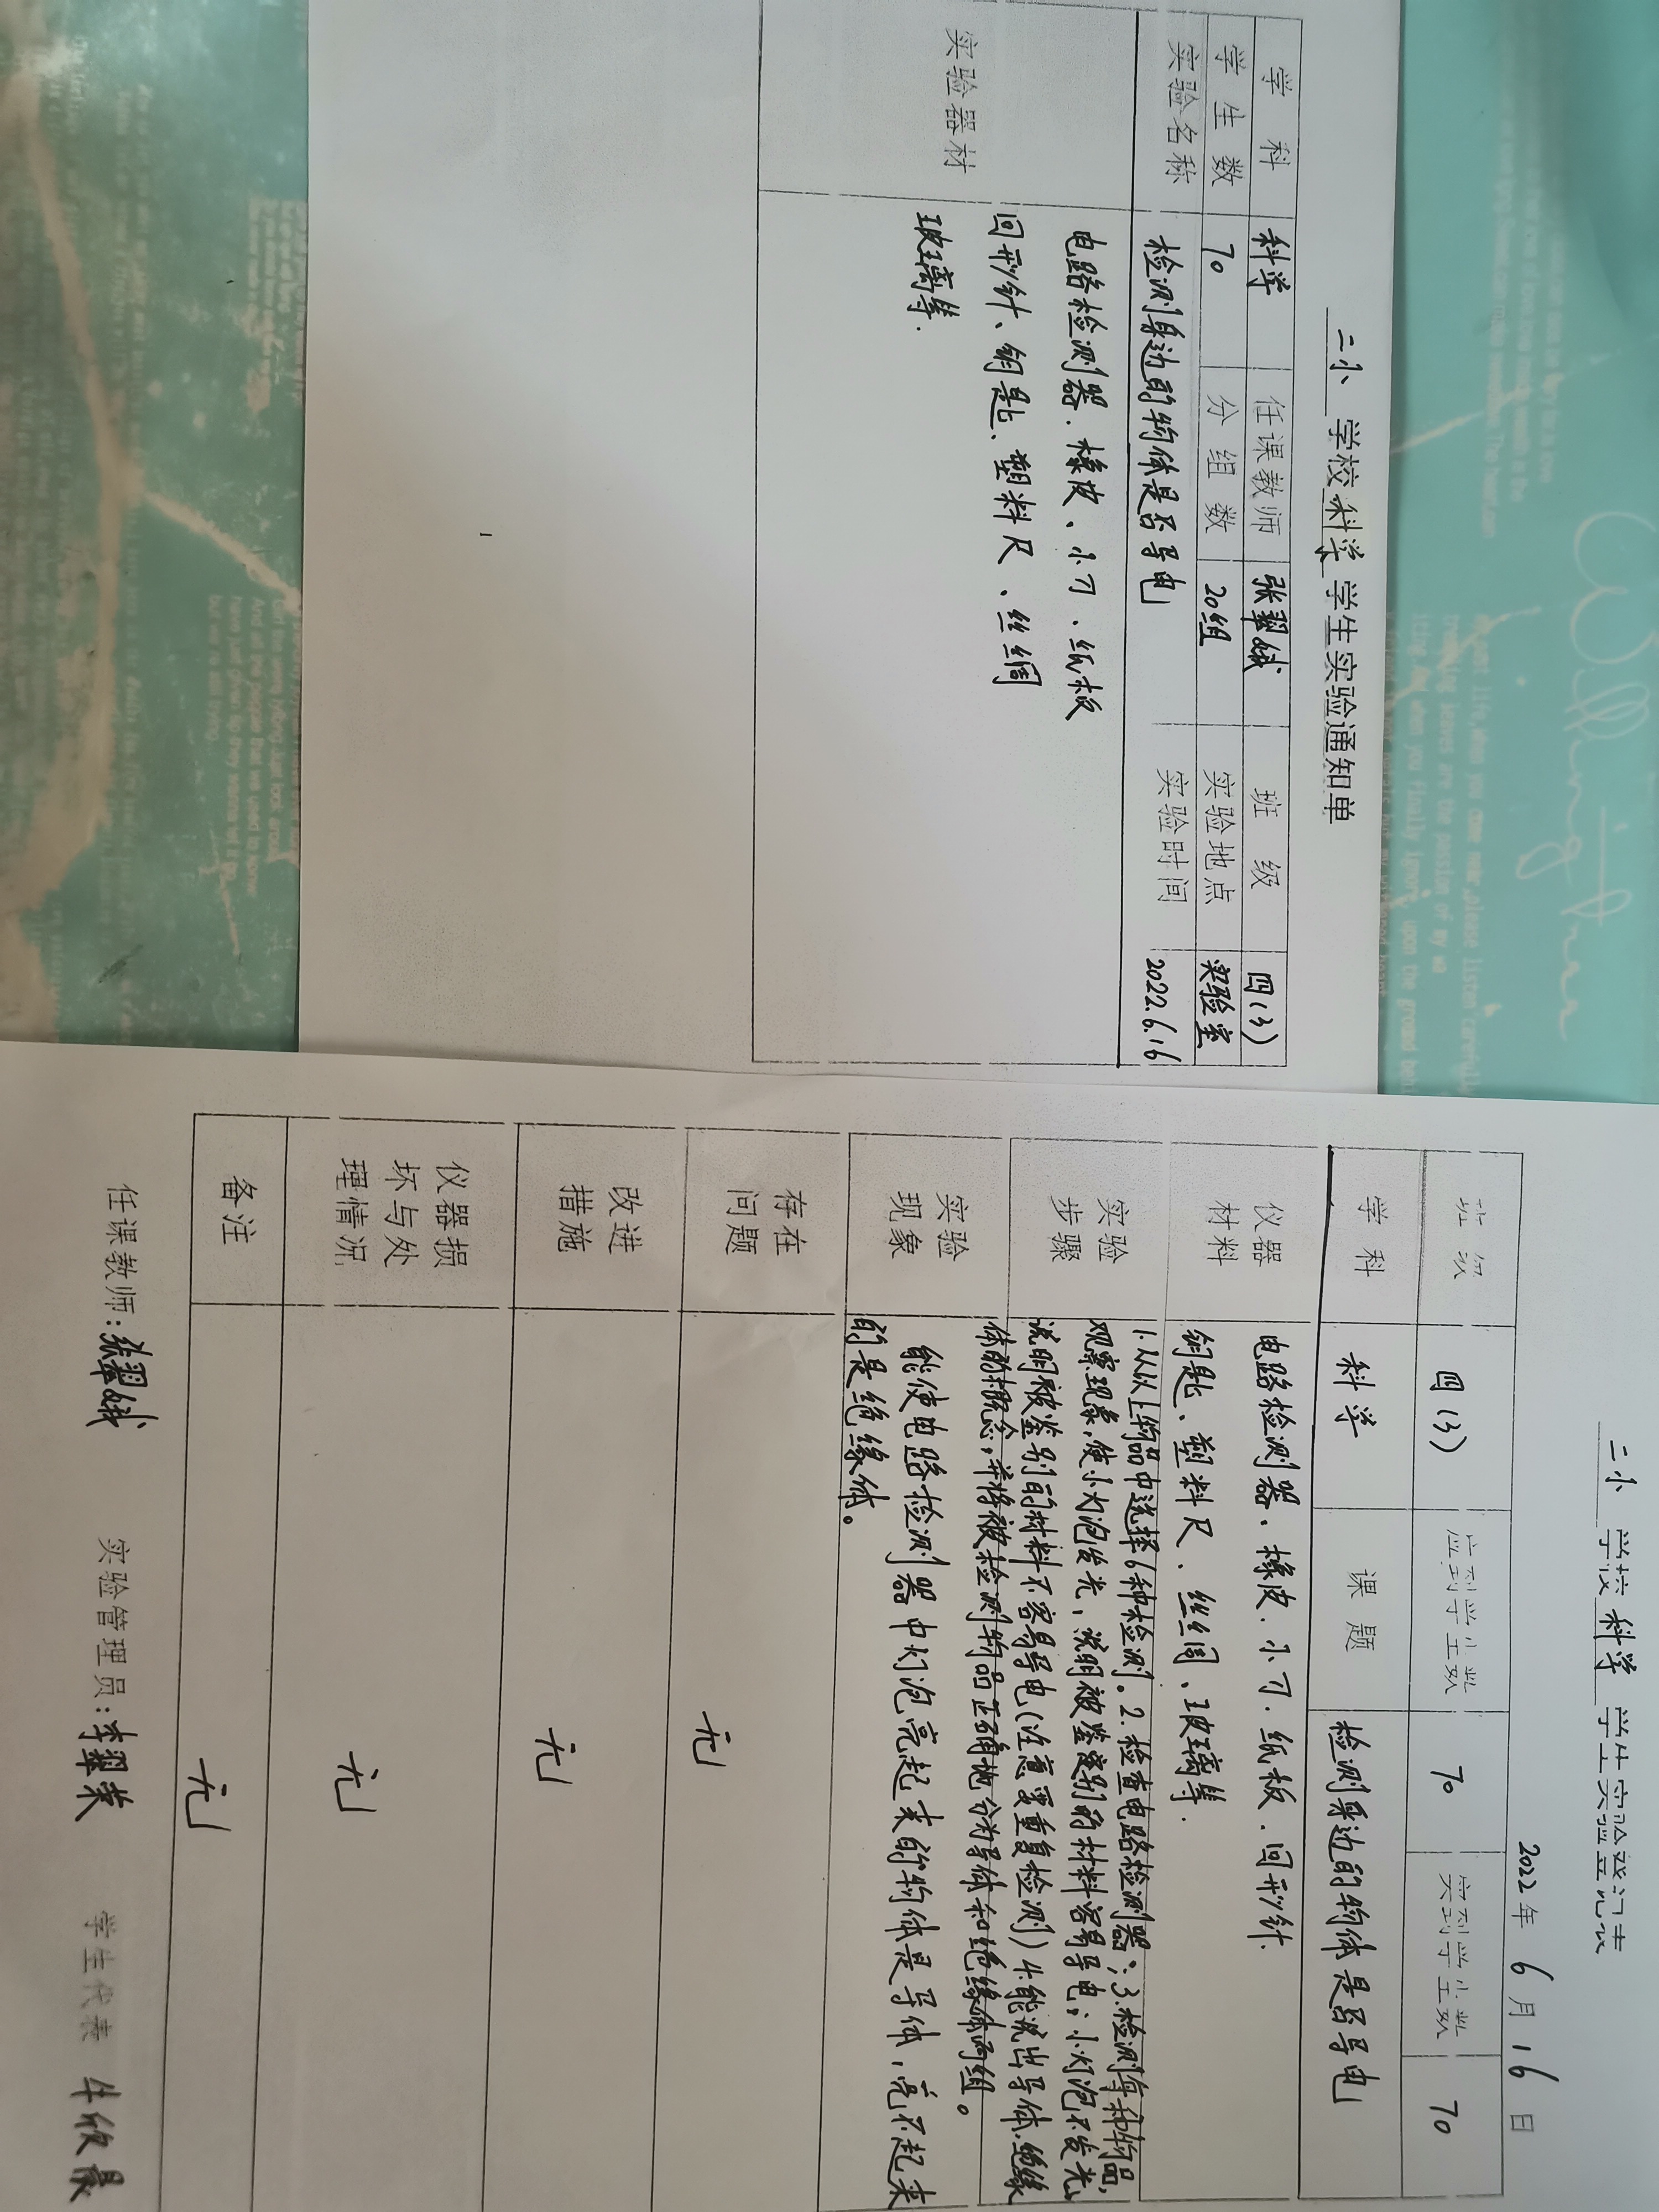 二小 学校 科学 学生实验通知单
学科 科学 任课教师 张翠娥 班级 四(3)
学生数 70 分组数 20组 实验地点 实验室
实验名称 检测身边的物体是否导电 实验时间 2022.6.16
实验器材
电路检测器、橡皮、小刀、纸板
回形针、钥匙、塑料尺、丝绸
玻璃等.
二小 学校 科学 学生实验登记表
2022年 6月 16日
班级 四(3) 应到学生数 70 实到学生数 70
学科 科学 课题 检测身边的物体是否导电
仪器
材料
电路检测器、橡皮、小刀、纸板、回形针、
钥匙、塑料尺、丝绸、玻璃等.
实验
步骤
1.从以上物品中选择6种检测。2.检查电路检测器;3.检测每种物品,
观察现象,使小灯泡发光,说明被鉴别的材料容易导电;小灯泡不发光,
说明被鉴别的材料不容易导电(注意要重复检测)4.能说出导体、绝缘
体的概念,并将被检测物品正确地分为导体和绝缘体两组。
实验
现象
能使电路检测器中灯泡亮起来的物体是导体,亮不起来
的是绝缘体。
存在
问题
无
改进
措施
无
仪器损
坏与处
理情况
无
备注 无
任课教师:张翠娥 实验管理员:李翠荣 学生代表 牛欣晨